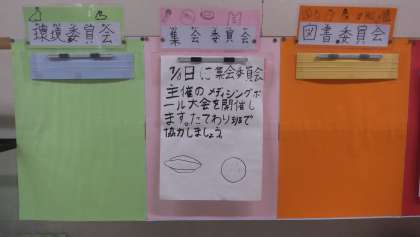 環境委員会
集会委員会
図書委員会
7/1日に集会委員会
主催のメディシングボ
ール大会を開催し
ます。たてわり班で
協力しましょう。